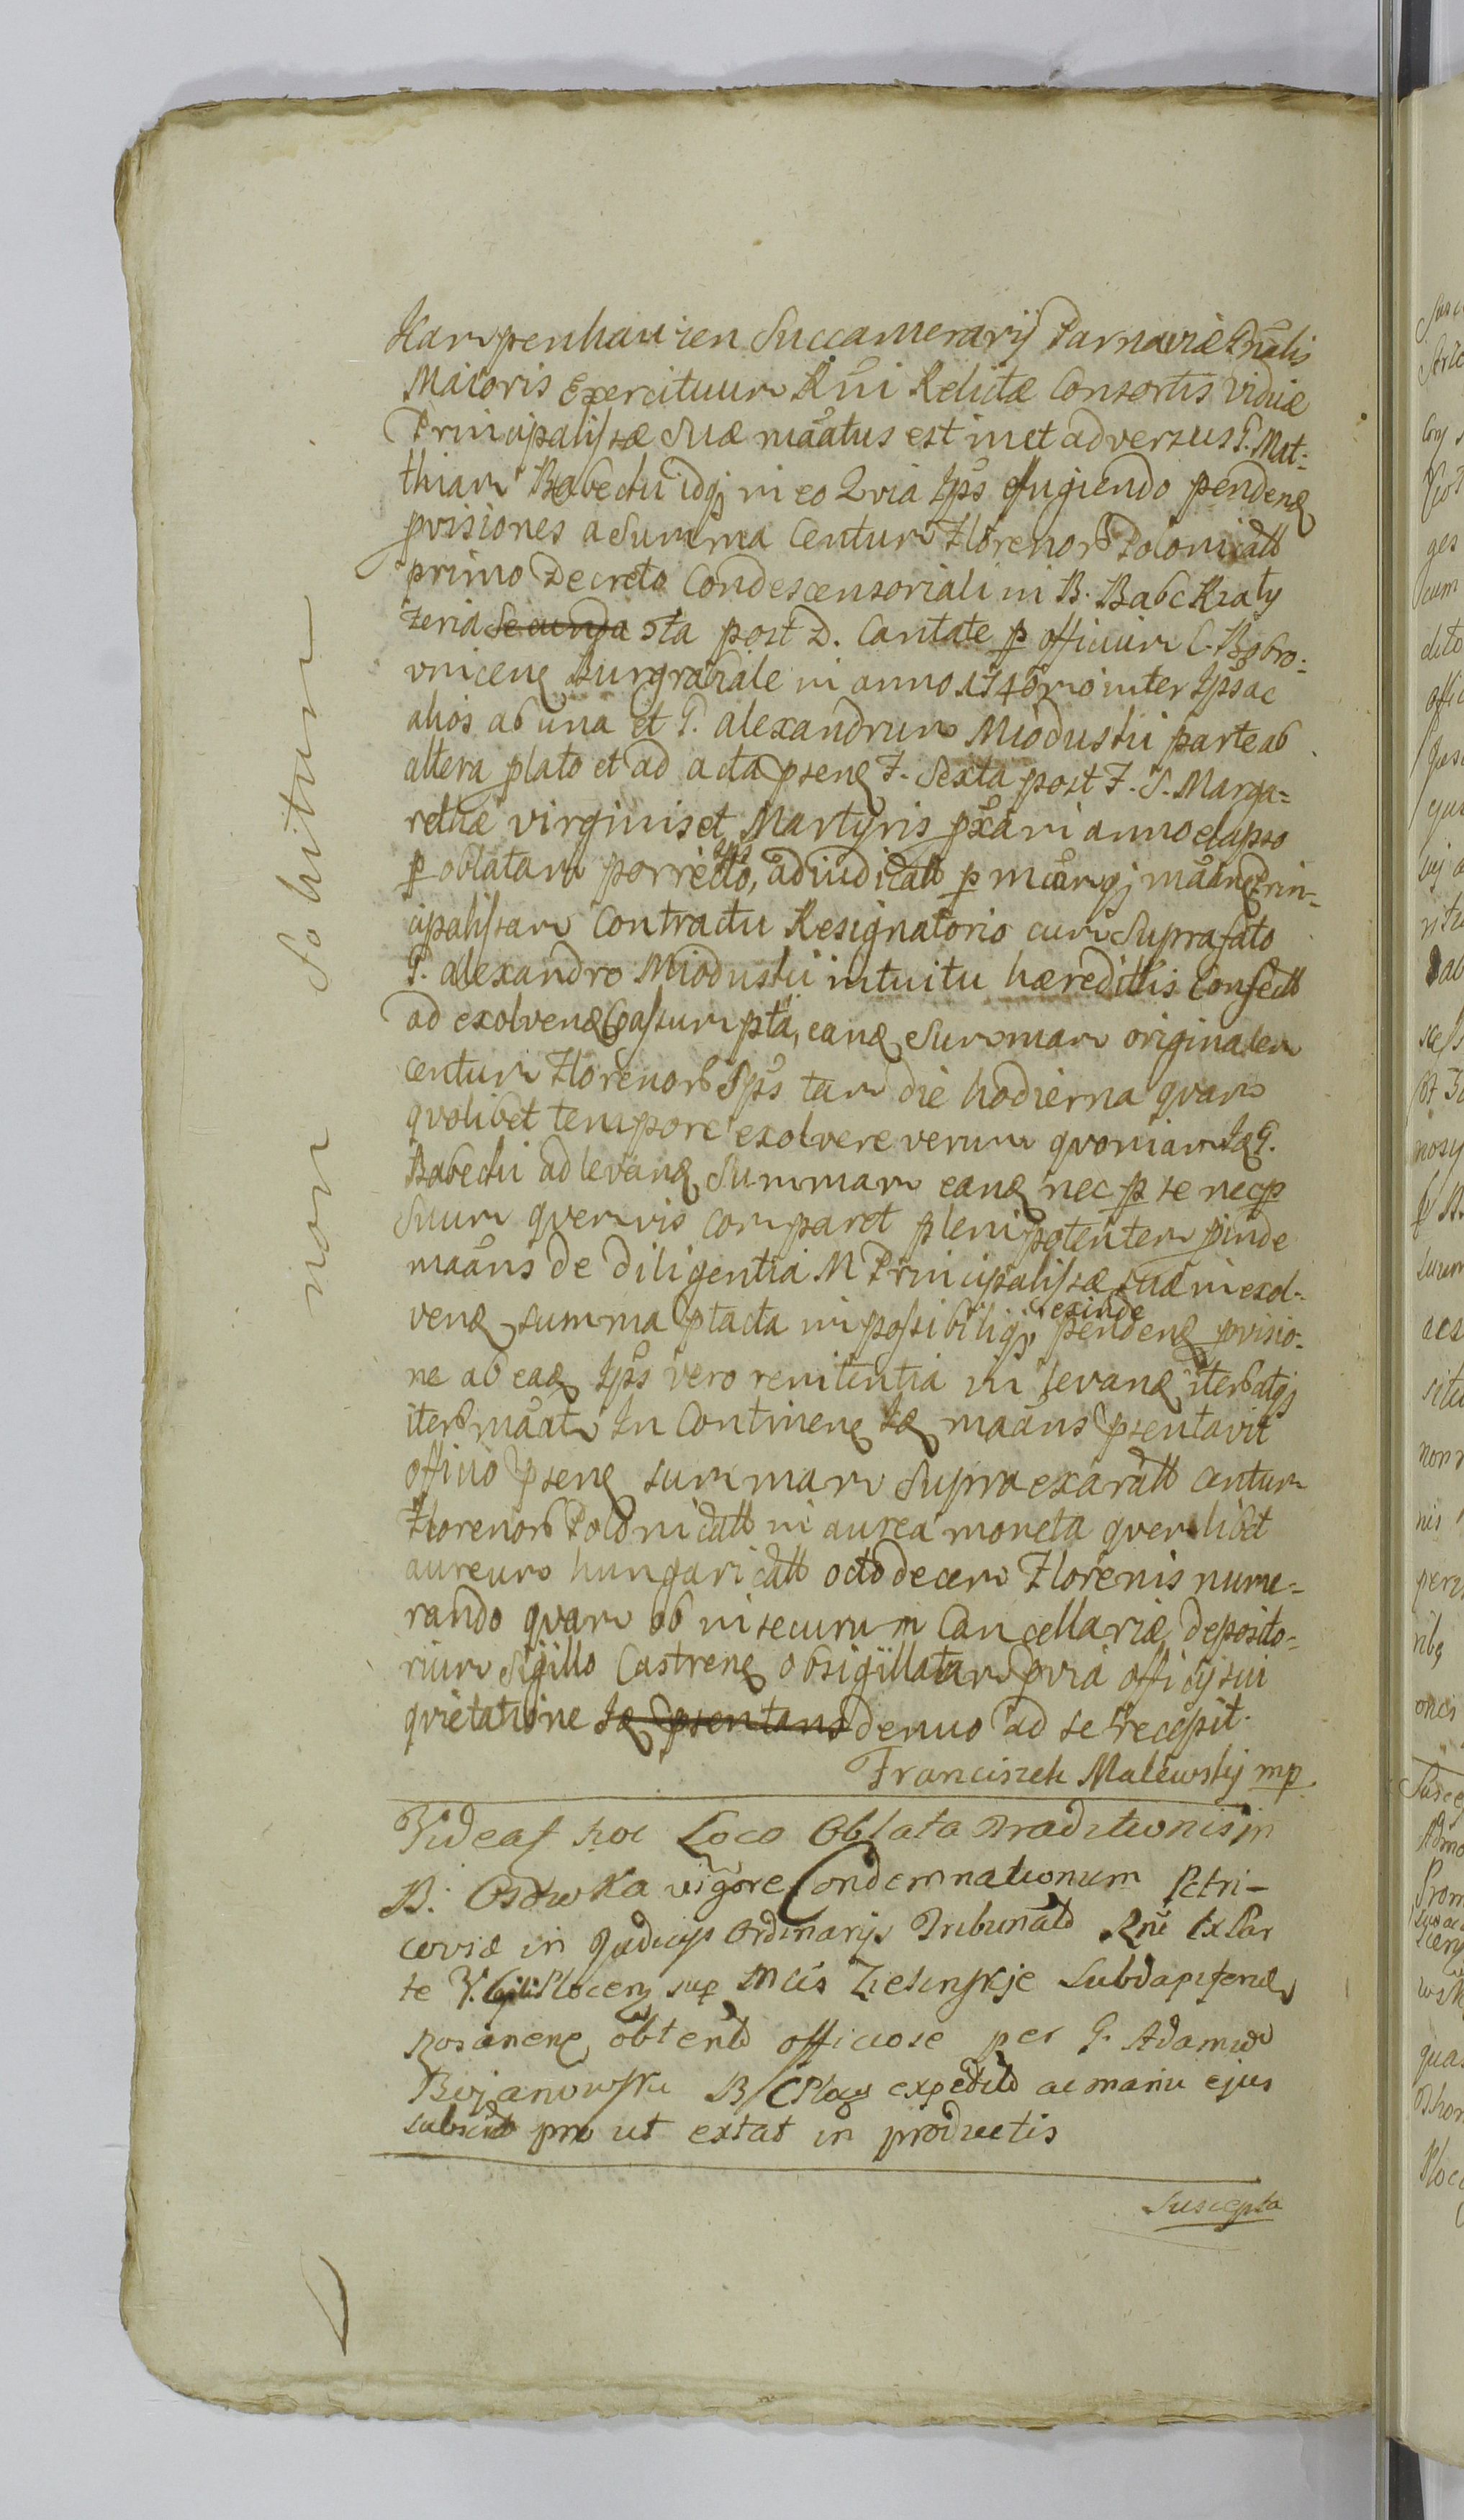 Karpenhauzen Succamerarij Parnaviæ Gnalis
Maioris Exercituum Rni Relictæ Consortis viduæ
Principalissæ suæ maatus est inct adversus G. Mat=
thiam Babecki idqz in eo Qvia Ips effugiendo pendenę
pvisiones a Summa Centum Florenorb Polonicatt
primo Decreto Condescensoriali in B. Babc Kiały
Feria Secunda 3ta post D. Cantate p officium C. Bobro=
vnicenę Burgrabiale in anno 1746 mo inter Ips ac
alios ab una et G. Alexandrum Mioduski parte ab
altera plato et ad acta psenę F. Sexta post F. S. Marga=
rethæ virginis et Martyris pxa ri anno elapso
p oblatam porrecto, Ips adiudicatt p mcam qj maang Prin=
cipalissam Contractu Resignatorio cum Suprafato
G. Alexandro Mioduski intuitu hæredittis Confectt
ad exolvenę assumpta, eanę Summam originalem
centum Florenorb Ips tam die hodierna qvam
qvolibet tempore exolvere verum qvoniam Ię G.
Babecki ad levanę Summam eanę nec p se nec p
Suum qvemvis comparet plenipotentem pinde
maans de diligentia M Principalissæ suæ in exol=
venę summa ptacta inpossibiliqz exinde pendenę pvisio=
ne ab eaę Ips vero renitentia in levanę iterb atqz
iterb maatr In Continenę Ię maans psentavit
officio psenę summam Supra exaratt centum
Florenorb Polonicatt in aurea moneta qvemlibet
aureum hungaricatt octodecem Florenis nume=
rando qvam ob in securum Cancellariæ deposito=
rium Sigillo Castrenę obsigillatam pvia officij sui
qvietatione Ię psentans denuo ad se recepit.
Franciszek Malewskij mp
Videas hoc Loco Oblata Traditionis in
B. Osowka vigore Condemnationum Petri-
coviæ in Judicijs Ordinarijs Tribunald Rni Ex Par
te V. Cplis Plocen sup Mcis Zielinskje Subdapiferiæ
Rosanenę obtentd officiose per G. Adamum
Bojanowski B C Ploc expeditd ac manu ejus
subscrd pro ut extat in productis
Suscepta
non solvitur